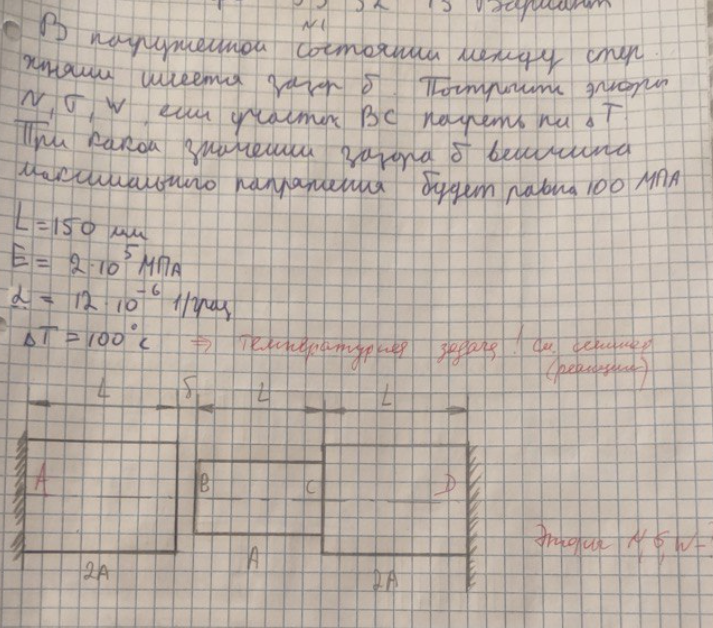 13 Вариант
N1
В нагруженной состоянии между стер
жнями имеется зазор δ. Построить эпюры
N, σ, W, если участок BC нагреть на ΔT.
При какой значении зазора δ величина
максимального напряжения будет равна 100 МПА
L = 150 мм
E = 2·10⁵ МПА
α = 12·10⁻⁶ 1/град
ΔT = 100°c ⇒ температурная задача! См. семинар
(реакции)
L δ L L
A B C D
Эпюры N, σ, W -
2A A 2A